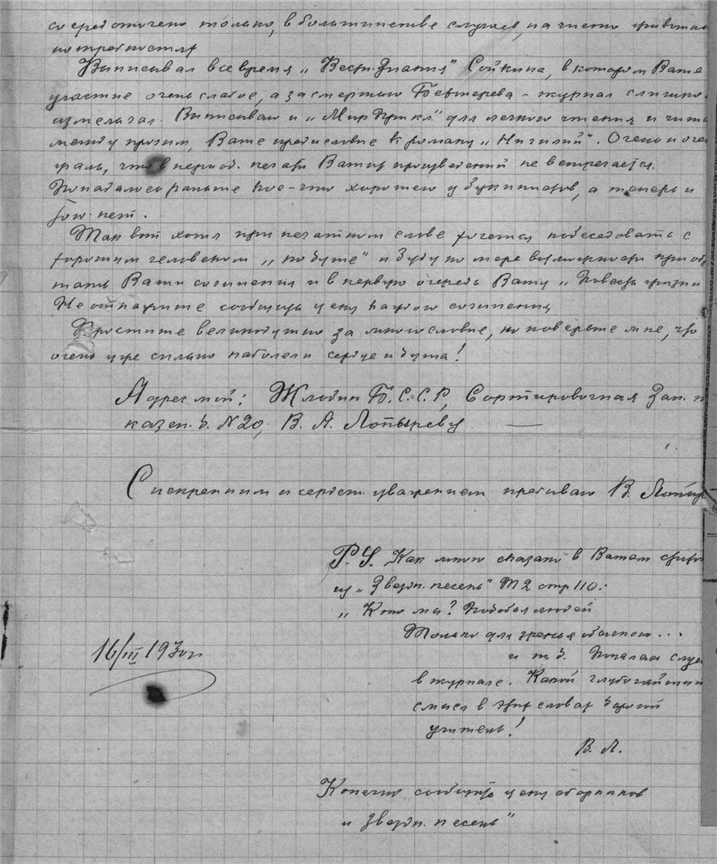 сосредоточено только, в большинстве случаев, на чисто
потребностях
Выписывал все время „Вестн. Знания" Сойкина, в котором Ваше
участие очень слабое, а за смертью Бехтерева – журнал слишком
измельчал. Выписываю и „Мир Прикл" для легкого чтения и
между прочим, Ваше предисловие к роману „Нигилий". Очень и очень
жаль, что в период. печати Ваших произведений не встречается.
Попадалось раньше кое-что хорошего у букинистов, а теперь и
того нет.
Так вот хотя при печатном слове хочется побеседовать с
хорошим человеком „по душе" и буду по мере возможности
Ваши сочинения и в первую очередь Вашу „Повесть жизни
Не откажите сообщить цену каждого сочинения
Простите великодушно за многословие, но поверьте мне, что
очень уже сильно наболели сердце и душа!
Адрес мой: Жлобин Б.С.С.Р, Сортировочная Зап.
казен. д. N 20, В. А. Лопыреву
С искренним и сердеч. уважением пребываю В.
P.S. Как много сказано в Вашем
из „Звездн. песень" Т 2 стр 110:
„Кто мы? Подобья людей
Только для зренья обычного...
и т.д.
в журнале. Какой глубочайший
смысл в этих словах дорогой
учитель!
В. Л.
16/III 1930 г.
Конечно сообщите цену сборников
и Звездн. песень"